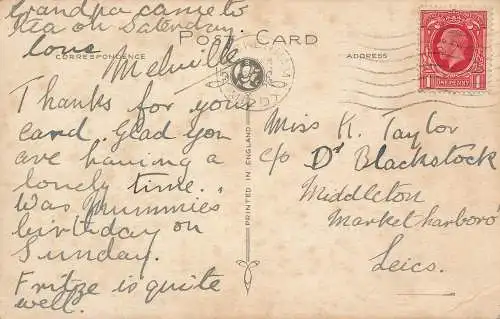 Grandpa came to
tea on Saterday.
love
Melville
POST CARD
CORRESPONDENCE
ADDRESS
Thanks for your
card. Glad you
are having a
lonely time.
Was Mummies
birthday on
Sunday.
Fritze is quite
well.
PRINTED IN ENGLAND
Miss K. Taylor
c/o Dr Blackstock
Middleton
Market harboro'
Leics.
1 ONE PENNY 1